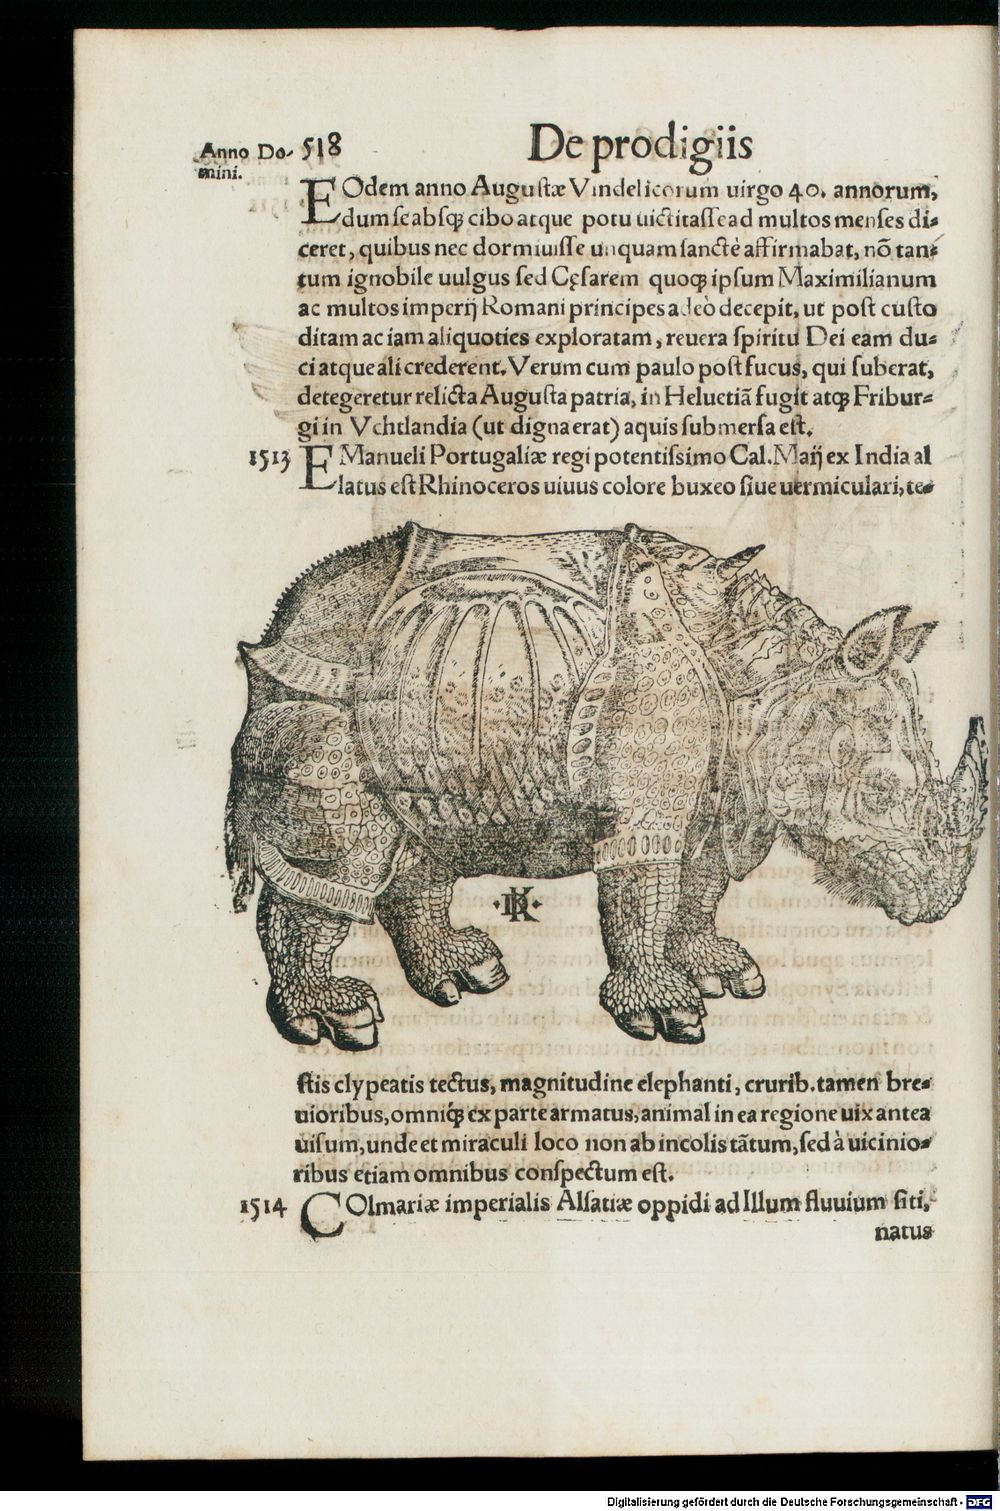 Anno Do-
mini.
518
De prodigiis
EOdem anno Augustæ Vindelicorum uirgo 40. annorum,
dum se absq; cibo atque potu uictitasse ad multos menses di-
ceret, quibus nec dormiuisse unquam sanctè affirmabat, nõ tan-
tum ignobile uulgus sed Cęsarem quoq; ipsum Maximilianum
ac multos imperij Romani principes adeò decepit, ut post custo
ditam ac iam aliquoties exploratam, reuera spiritu Dei eam du-
ci atque ali crederent. Verum cum paulo post fucus, qui suberat,
detegeretur relicta Augusta patria, in Heluetiã fugit atq; Fribur-
gi in Vchtlandia (ut digna erat) aquis submersa est.
1513 EManueli Portugaliæ regi potentissimo Cal. Maij ex India al
latus est Rhinoceros uiuus colore buxeo siue uermiculari, te-
stis clypeatis tectus, magnitudine elephanti, crurib. tamen bre-
uioribus, omniq; ex parte armatus, animal in ea regione uix antea
uisum, unde et miraculi loco non ab incolis tãtum, sed à uicinio-
ribus etiam omnibus conspectum est.
1514 COlmariæ imperialis Alsatiæ oppidi ad Illum fluuium siti,
natus
Digitalisierung gefördert durch die Deutsche Forschungsgemeinschaft - DFG